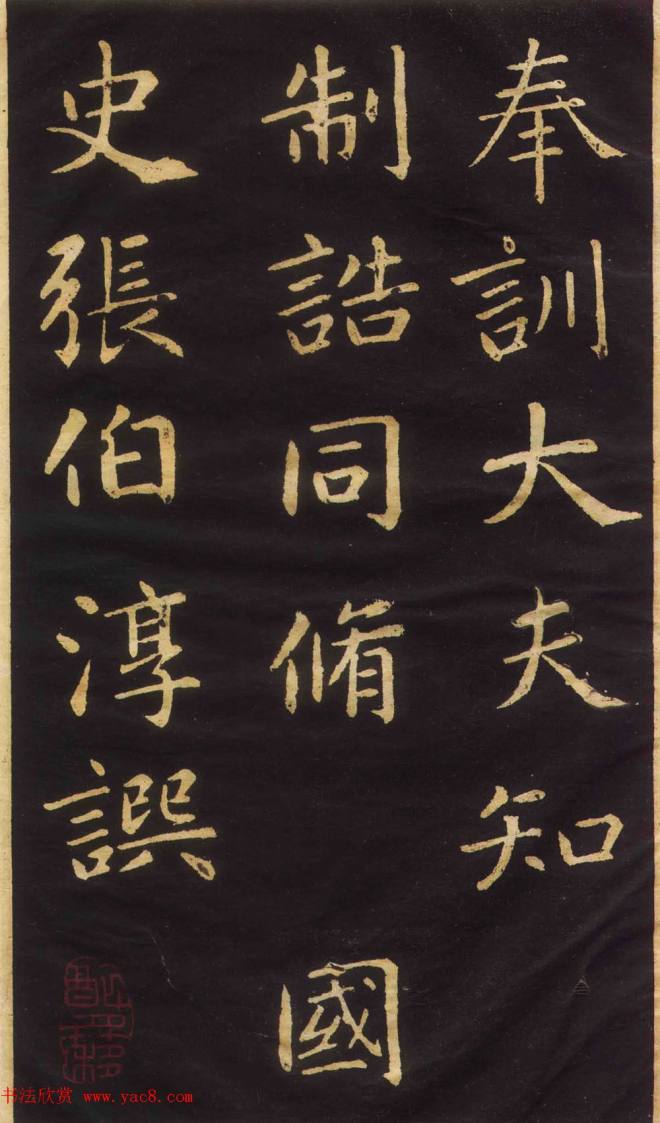 奉訓大夫知
制誥同脩 國
史張伯淳譔
书法欣赏 www.yac8.com